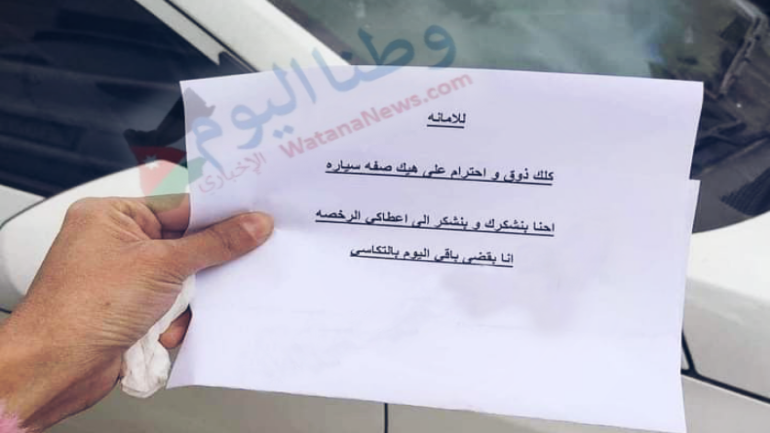 وطنا اليوم
الإخباري
WatanaNews.com
للامانه
كلك ذوق و احترام على هيك صفه سياره
احنا بنشكرك و بنشكر الي اعطاكي الرخصه
انا بقضي باقي اليوم بالتكاسي